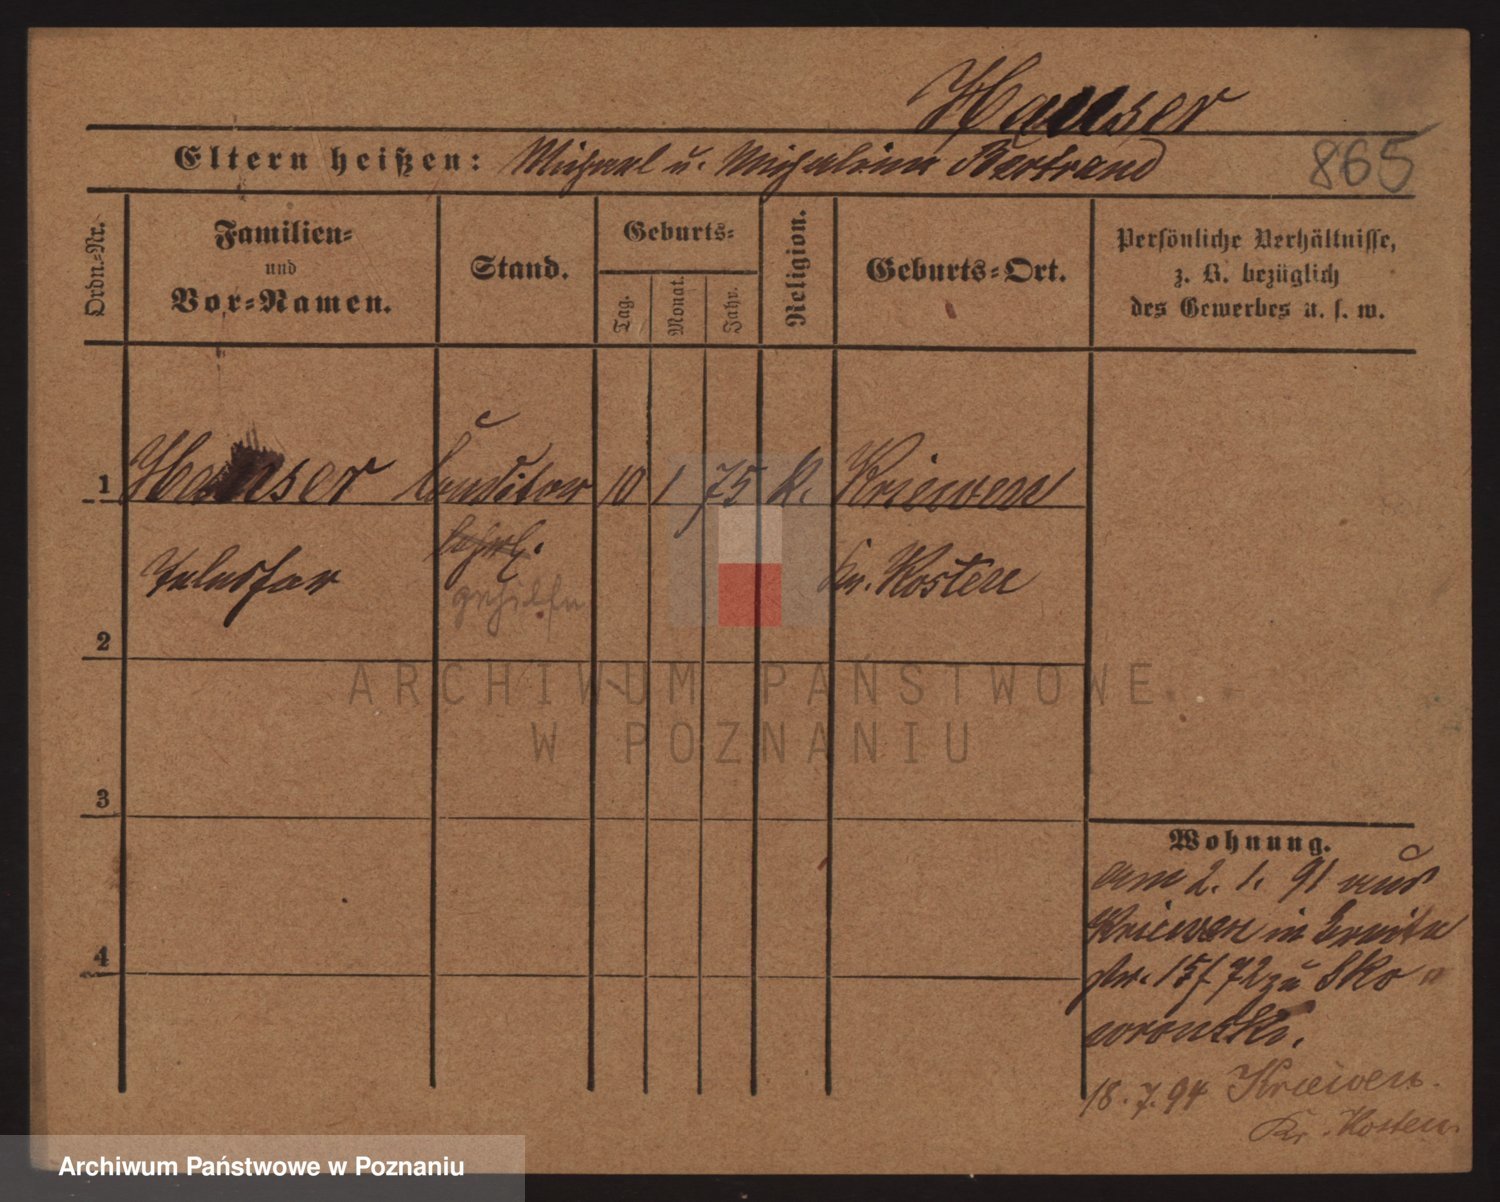 Hauser
Eltern heißen: Michael u. Michalina Bertrand
865
Ordn.-Nr.
Familien-
und
Vor-Namen.
Stand.
Geburts-
Tag.
Monat.
Jahr.
Religion.
Geburts-Ort.
Persönliche Verhältnisse,
z. B. bezüglich
des Gewerbes u. s. w.
1 Hauser Conditor 10 1 75 K. Kriewen
lehrl.
gehilfe
Kr. Kosten
2
3
4
Wohnung.
am 2. 1. 91 aus
Kriewen in Breite
str. 15/72 zu Sko
wronski.
18. 7. 94 Kriewen.
Kr. Kosten.
ARCHIWUM PAŃSTWOWE
W POZNANIU
Archiwum Państwowe w Poznaniu